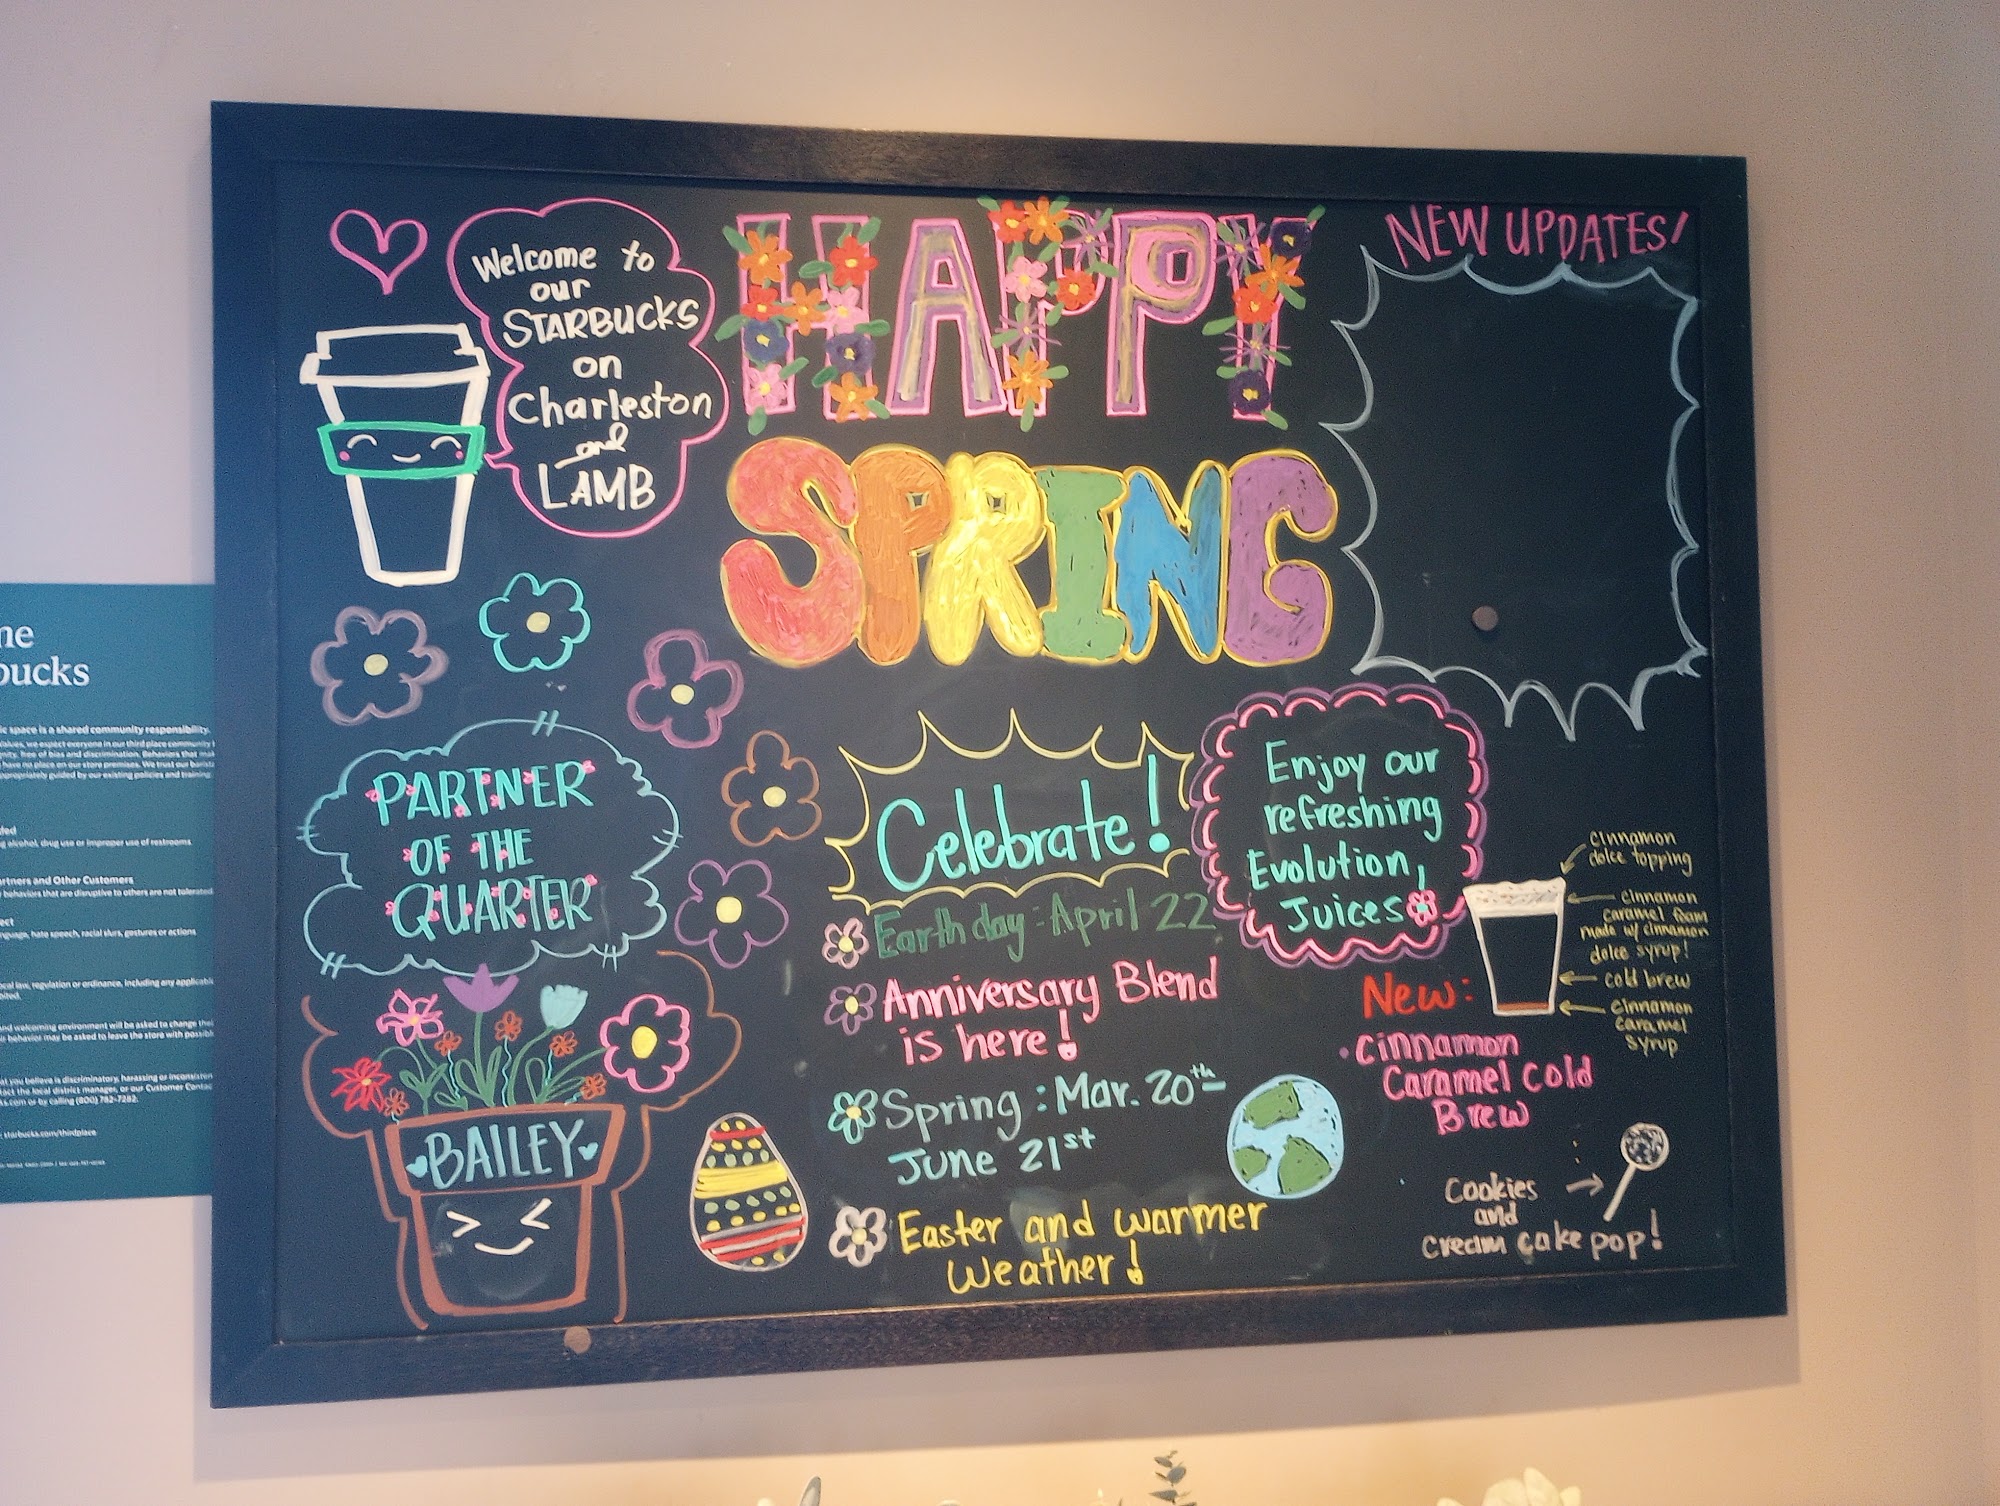 Welcome to
our
STARBUCKS
on
Charleston
and
LAMB
HAPPY
SPRING
NEW UPDATES!
PARTNER
OF THE
QUARTER
BAILEY
Celebrate!
Earth day: April 22
Anniversary Blend
is here!
Spring: Mar. 20th -
June 21st
Easter and warmer
weather!
Enjoy our
refreshing
Evolution,
Juices
cinnamon
dolce topping
cinnamon
caramel foam
made w/ cinnamon
dolce syrup!
cold brew
cinnamon
caramel
syrup
New:
cinnamon
Caramel cold
Brew
Cookies
and
cream cake pop!
me
bucks
ic space is a shared community responsibility.
values, we expect everyone in our third place community
nity, free of bias and discrimination. Behaviors that
have no place on our store premises. We trust our
appropriately guided by our existing policies and training
g alcohol, drug use or improper use of restrooms
artners and Other Customers
behaviors that are disruptive to others are not tolerated
ect
nguage, hate speech, racial slurs, gestures or actions
ocal law, regulation or ordinance, including any
bited.
and welcoming environment will be asked to change
is behavior may be asked to leave the store with
at you believe is discriminatory, harassing or
act the local district manager, or our Customer
ks.com or by calling (800) 782-7282.
starbucks.com/thirdplace